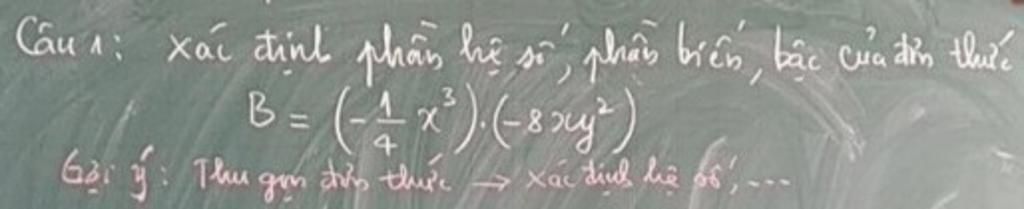 Câu 1: xác định phần hệ số, phần biến, bậc của đơn thức
B = (-1/4 x³).(-8xy²)
Gợi ý: Thu gọn đơn thức → xác định hệ số, ...